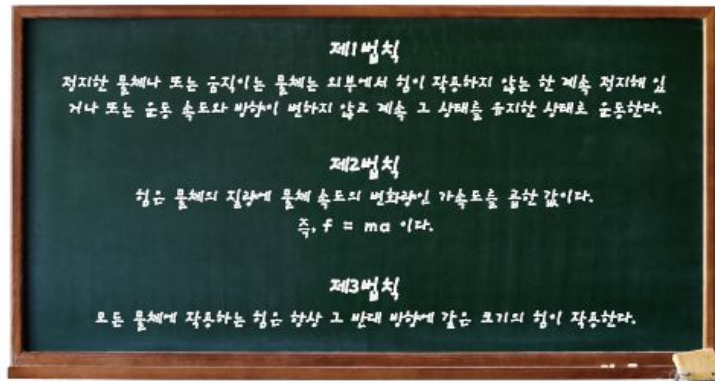 제1법칙
정지한 물체나 또는 움직이는 물체는 외부에서 힘이 작용하지 않는 한 계속 정지해 있
거나 또는 운동 속도와 방향이 변하지 않고 계속 그 상태를 유지한 상태로 운동한다.
제2법칙
힘은 물체의 질량에 물체 속도의 변화량인 가속도를 곱한 값이다.
즉, f = ma 이다.
제3법칙
모든 물체에 작용하는 힘은 항상 그 반대 방향에 같은 크기의 힘이 작용한다.